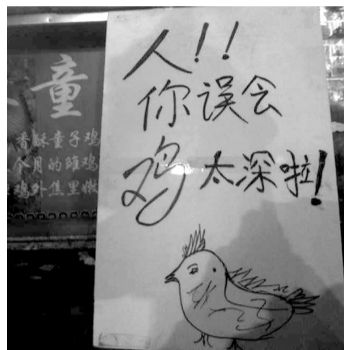 童
香酥童子鸡
个月的雏鸡
鸡外焦里嫩
人!!
你误会
鸡太深啦!